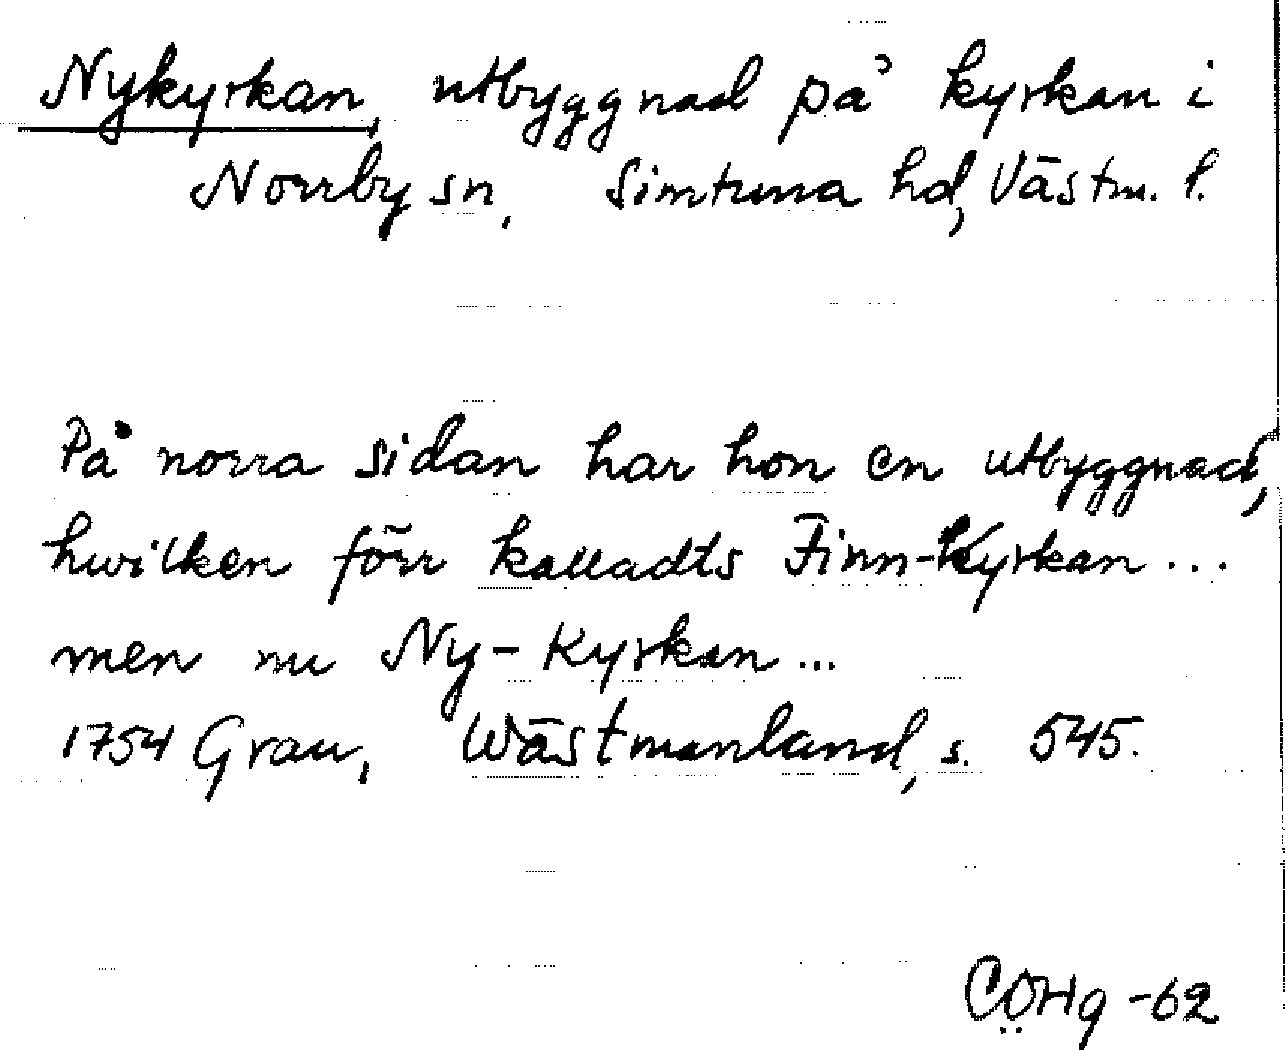 Nykyrkan, utbyggnad på kyrkan i
Norrby sn, Simtuna hd, Västm. l.
På norra sidan har hon en utbyggnad,
hwilken förr kalladts Finn-Kyrkan...
men nu Ny-Kyrkan...
1754 Grau, Wästmanland, s. 545.
CÖHg -62